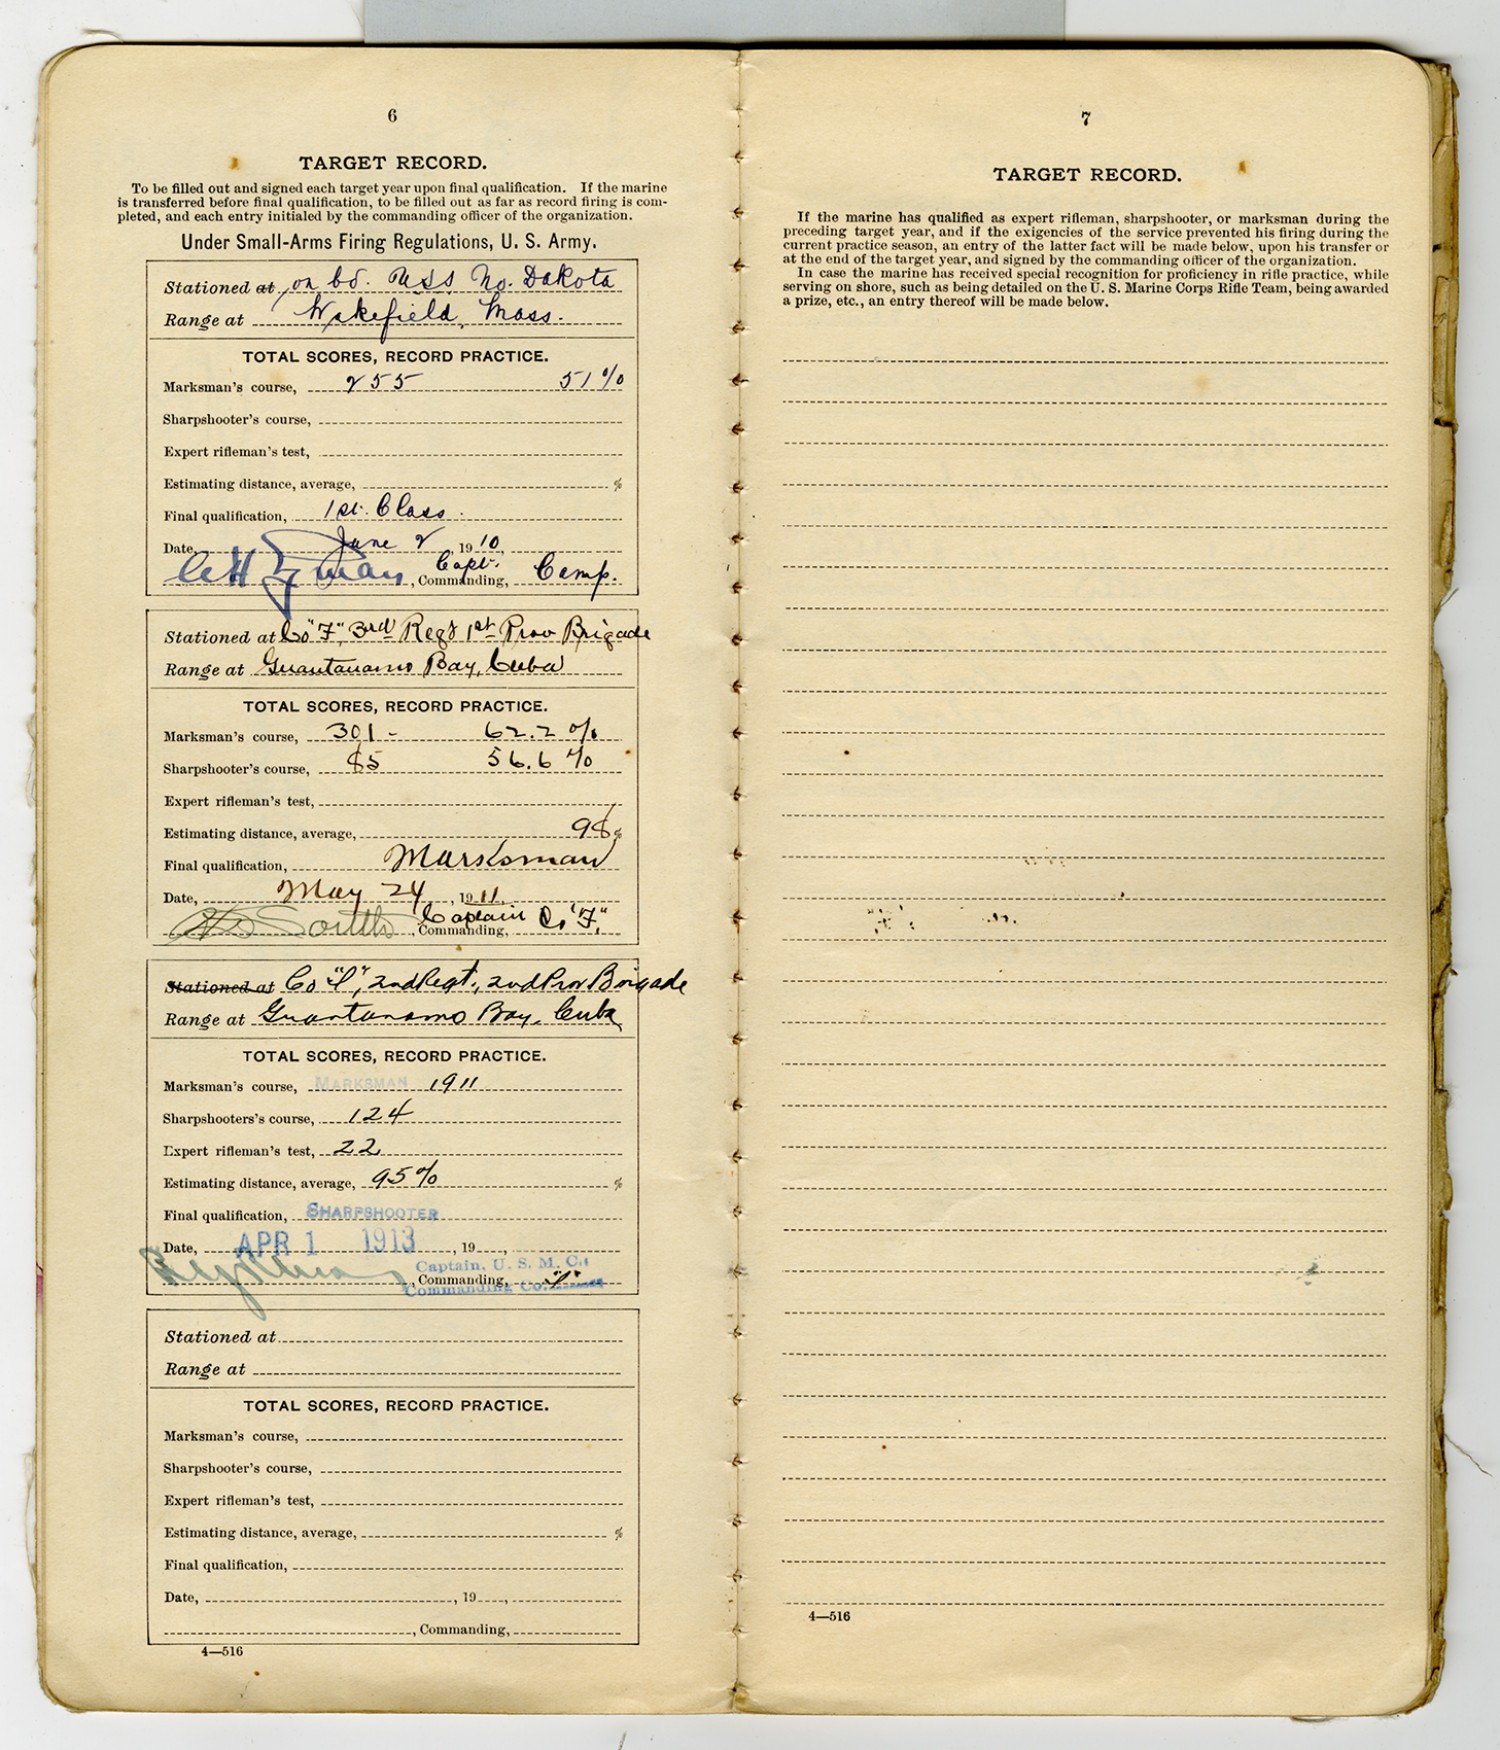 6
TARGET RECORD.
To be filled out and signed each target year upon final qualification. If the marine
is transferred before final qualification, to be filled out as far as record firing is com-
pleted, and each entry initialed by the commanding officer of the organization.
Under Small-Arms Firing Regulations, U. S. Army.
Stationed at on bd. USS No. Dakota
Range at Wakefield, Mass.
TOTAL SCORES, RECORD PRACTICE.
Marksman's course, 255 51%
Sharpshooter's course,
Expert rifleman's test,
Estimating distance, average, %
Final qualification, 1st. Class.
Date, June 2, 1910,
Capt.
, Commanding, Comp.
Stationed at Co "F" 3rd Regt 1st Prov Brigade
Range at Guantanamo Bay, Cuba
TOTAL SCORES, RECORD PRACTICE.
Marksman's course, 301 - 62.2 %
Sharpshooter's course, 85 56.6 %
Expert rifleman's test,
Estimating distance, average, 98 %
Final qualification, Marksman
Date, May 24, 1911,
Captain
, Commanding, Co "F"
Stationed at Co "I", 2nd Regt., 2nd Prov Brigade
Range at Guantanamo Bay, Cuba
TOTAL SCORES, RECORD PRACTICE.
Marksman's course, MARKSMAN 1911
Sharpshooters's course, 124
Expert rifleman's test, 22
Estimating distance, average, 95% %
Final qualification, SHARPSHOOTER
Date, APR 1 1913, 19 ,
Captain, U. S. M. C.,
, Commanding, "I"
Commanding Co.
Stationed at
Range at
TOTAL SCORES, RECORD PRACTICE.
Marksman's course,
Sharpshooter's course,
Expert rifleman's test,
Estimating distance, average, %
Final qualification,
Date, , 19 ,
, Commanding,
4—516
7
TARGET RECORD.
If the marine has qualified as expert rifleman, sharpshooter, or marksman during the
preceding target year, and if the exigencies of the service prevented his firing during the
current practice season, an entry of the latter fact will be made below, upon his transfer or
at the end of the target year, and signed by the commanding officer of the organization.
In case the marine has received special recognition for proficiency in rifle practice, while
serving on shore, such as being detailed on the U. S. Marine Corps Rifle Team, being awarded
a prize, etc., an entry thereof will be made below.
4—516